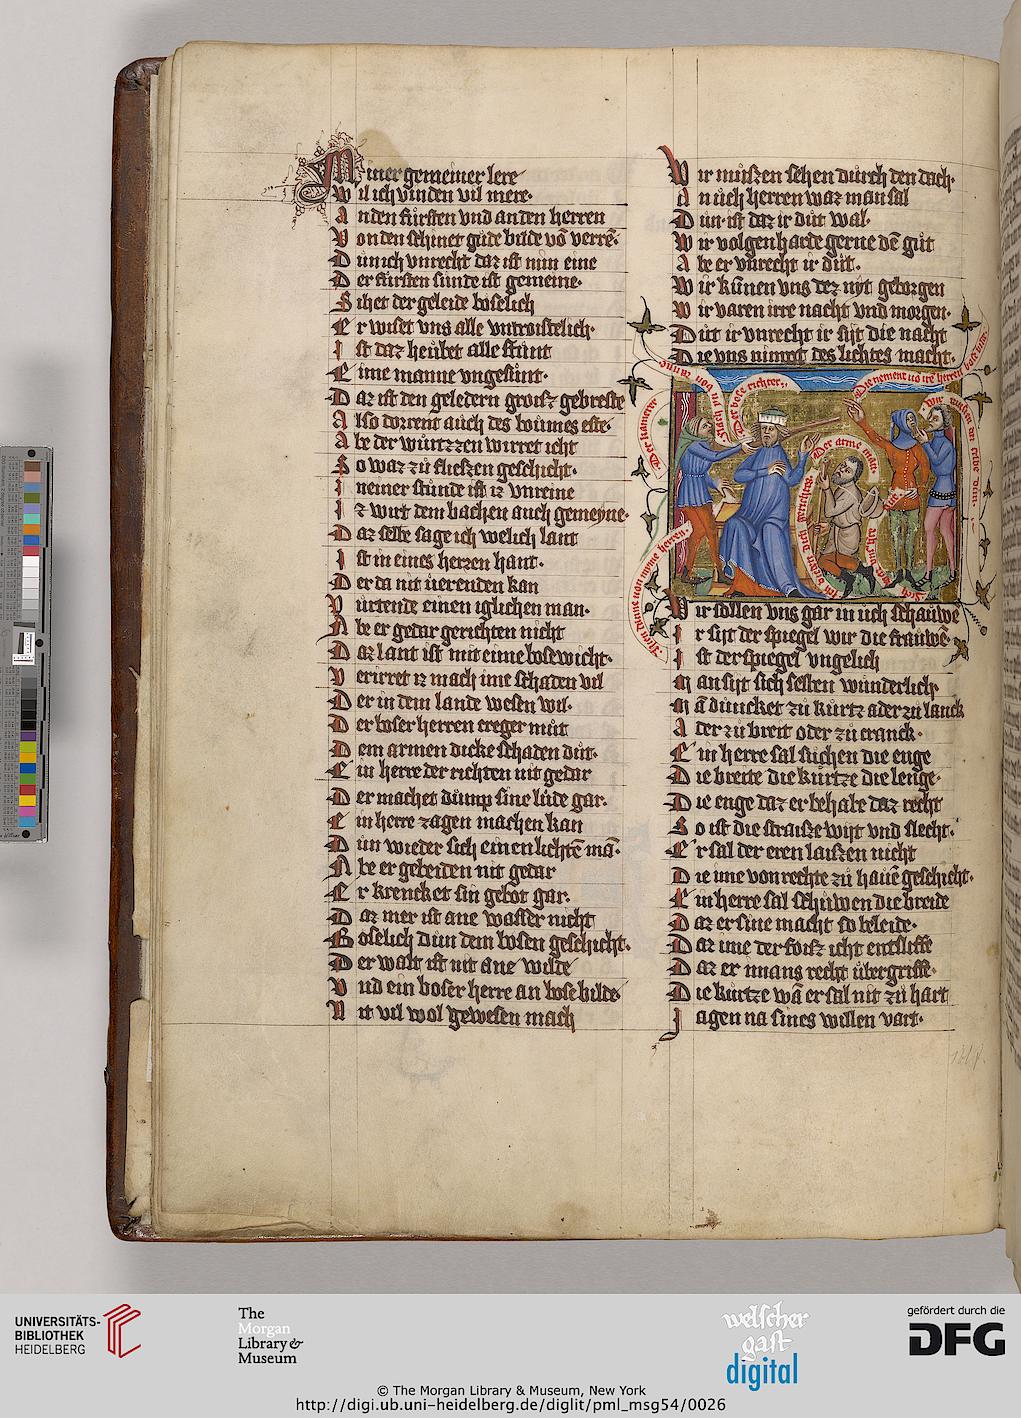 Miner gemeiner lere
wil ich vinden vil mere·
An den fürsten vnd an den herren
Von den schinet gude bilde võ verrẽ·
Dun ich vnrecht daz ist mĩn eine
Der fürsten sunde ist gemeine·
Sihet der geleide boselich
Er wiset vns alle vntroistelich·
Ist daz heubet alle stunt
Eime manne vngesunt·
Daz ist den geledern groisz gebreste
Also dorrent auch des boumes este·
Abe der wurtzzen wirret icht
So waz zu flieszen geschicht·
In einer stunde ist iz vnreine
Iz wirt dem bachen auch gemeyne·
Daz selbe sage ich welich lant
Ist in eines herzen hant·
Der da nit uerenden kan
Vurtende einen iglichen man·
Abe er gedar gerichten nicht
Daz lant ist mit eime bosewicht·
Verirret iz mach ime schaden vil
Der in dem lande wesen wil·
Der boser herren creger mut
Dem armen dicke schaden dut·
Ein herre der richten nit gedar
Der machet dump sine lude gar·
Ein herre zagen machen kan
Dun wieder sich einen lichtẽ mã·
Abe er gebeiden nit gedar
Er krencket sin gebot gar·
Daz mer ist ane wasser nicht
Boselich dun dem bosen geschicht·
Der walt ist nit ane wilde
Vnd ein boser herre an bose bilde
Nit vil wol gewesen mach
Wir muszen sehen durch den dach·
An uch herren waz man sal
Dun· ist daz ir dut wal·
Wir volgen harde gerne dẽ gut
Abe er vnrecht ir dut·
Wir kunnen vns dez nyt geborgen
Wir varen irre nacht vnd morgen·
Dut ir vnrecht ir sijt die nacht
Die vns nimet des lichtes macht·
Der kamerer
Der bose richter
Der arme man
Wir sollen vns gar in uch schauwẽ
Ir sijt der spiegel wir die frauwẽ
Ist der spiegel vngelich
Man siht sich selben wunderlich·
Mã duncket zu kurtz ader zu lanck
Ader zu breit oder zu cranck·
Ein herre sal suchen die enge
Die breite die kurtze die lenge·
Die enge daz er behabe daz recht
So ist die strasze wijt vnd slecht·
Er sal der eren laiszen nicht
Die ime von rechte zu hauẽ geschicht·
Ein herre sal schuwen die breide
Daz er sine macht so beleide·
Daz ime der foisz icht entsliffe
Daz er nmans recht ubergriffe·
Die kurtze wã er sal nit zu hart
Iagen na sines willen vart·
UNIVERSITÄTS-
BIBLIOTHEK
HEIDELBERG
The
Morgan
Library &
Museum
welscher
gast
digital
gefördert durch die
DFG
© The Morgan Library & Museum, New York
http://digi.ub.uni-heidelberg.de/diglit/pml_msg54/0026